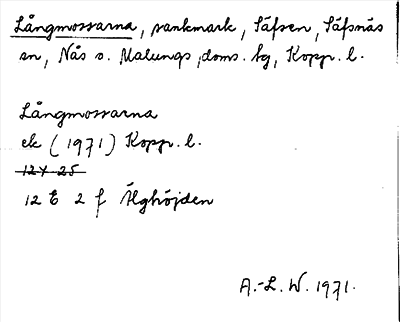 Långmossarna, sankmark, Säfsen, Säfsnäs
sn, Nås o. Malungs doms. hg, Kopp. l.
Långmossarna
ek (1971) Kopp. l.
12 E 2 f Älghöjden
A.-L. W. 1971.